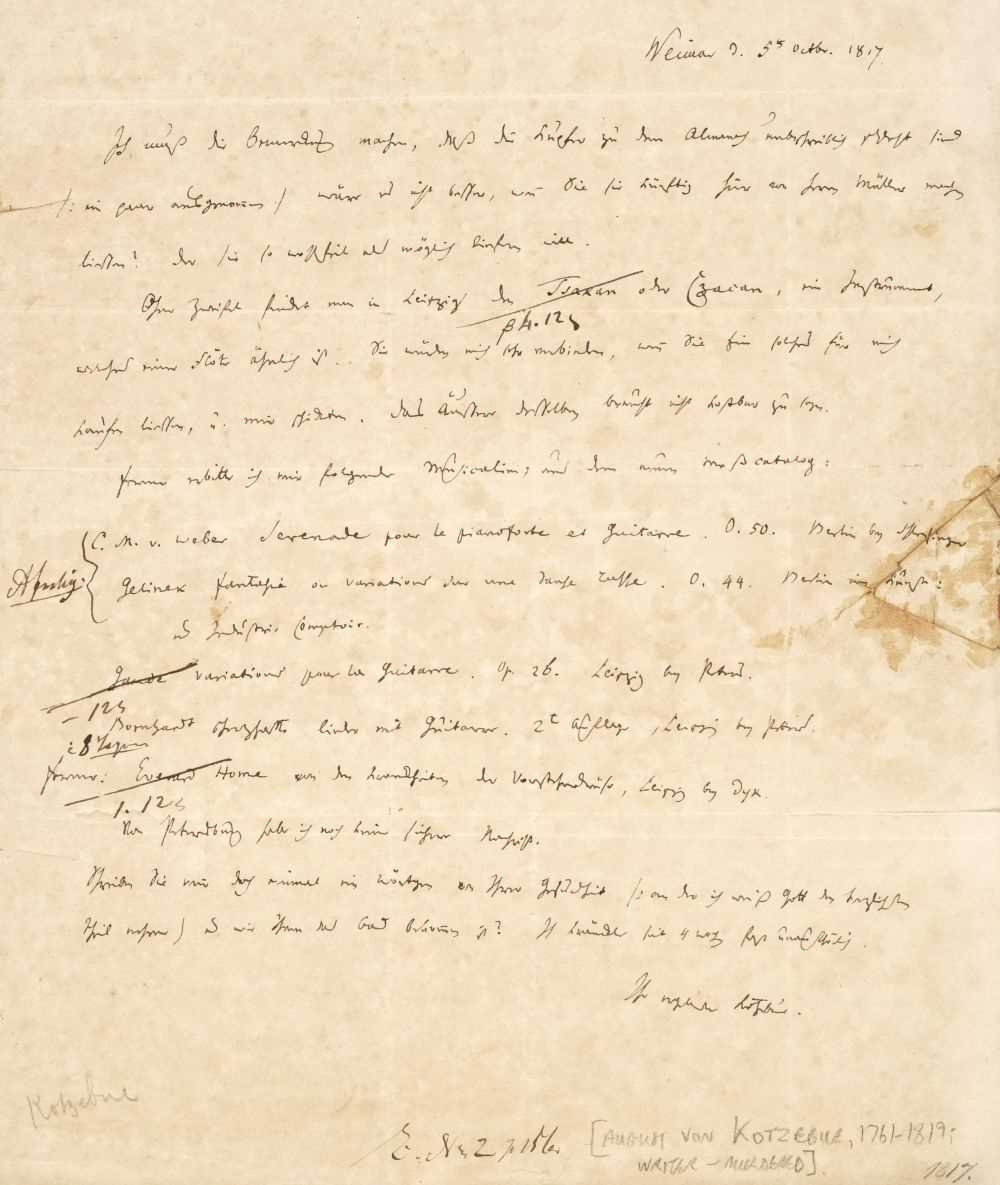 Weimar d. 5t Octbr. 1817
Ich muß die Bemerkung machen, daß die Kupfer zu dem Almanach unbeschreiblich schlecht sind
/: ein paar ausgenommen :/ wäre es nicht besser, wenn Sie sie künftig hier von Herrn Müller machen
liessen? der sie so wohlfeil als möglich liefern will.
Ohne Zweifel findet man in Leipzig den Tsakan oder Czacan, ein Instrument,
β 4. 12 g
welches einer Flöte ähnlich ist. Sie würden mich sehr verbinden, wenn Sie ein solches für mich
kaufen liessen, u. mir schickten. das Äussere desselben braucht nicht kostbar zu seyn.
ferner erbitte ich mir folgende Musicalien, aus dem neuen Meßcatalog:
C. M. v. Weber Serenade pour le pianoforte et Guitarre. O. 50. Berlin bey Schlesinger
Gelinek fantasie ou variations sur une danse russe. O. 44. Berlin im Kunst:
und Industrie Comptoir.
Gande variations pour la Guitarre. Op. 26. Leipzig bey Peters.
– 12 g
Bornhardt scherzhafte Lieder mit Guitarre. 2t Auflage, Leipzig bey Peters.
ferner: Everard Home von den Krankheiten der Vorsteherdrüse, Leipzig bey Dyk.
1. 12 g
Von Petersburg habe ich noch keine sichere Nachricht.
Schreiben Sie mir doch einmal ein Wörtgen von Ihrer Gesundheit (: an der ich weiß Gott den herzlichsten
Theil nehme) und wie Ihnen das Bad bekommen ist? Ich kränkle seit 4 Wochen fast unaufhörlich.
Ihr ergebener Kotzebue.
Kotzebue
[AUGUST VON KOTZEBUE, 1761–1819;
WRITER – MURDERED].
1817.